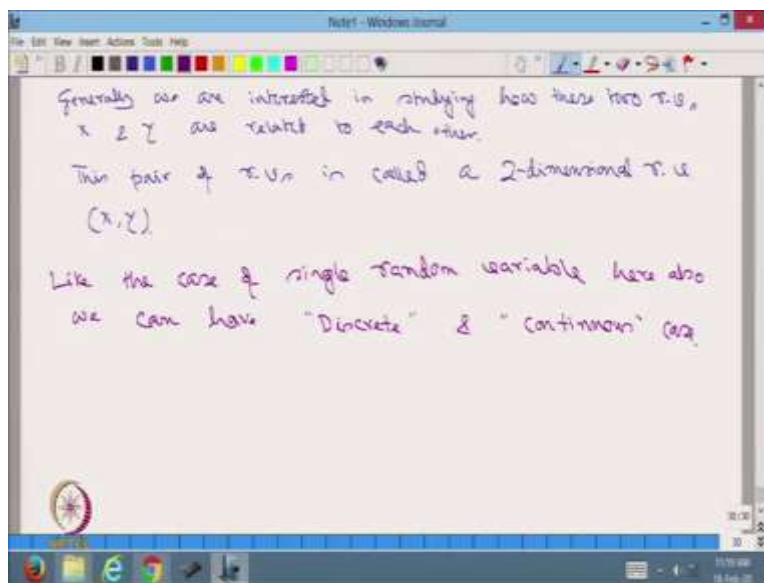 Note1 - Windows Journal
File Edit View Insert Actions Tools Help
Generally we are interested in studying how these two r.v.s
X & Y are related to each other.
This pair of r.v.s is called a 2-dimensional r.v
(X, Y)
Like the case of single random variable here also
we can have "Discrete" & "continuous" case.